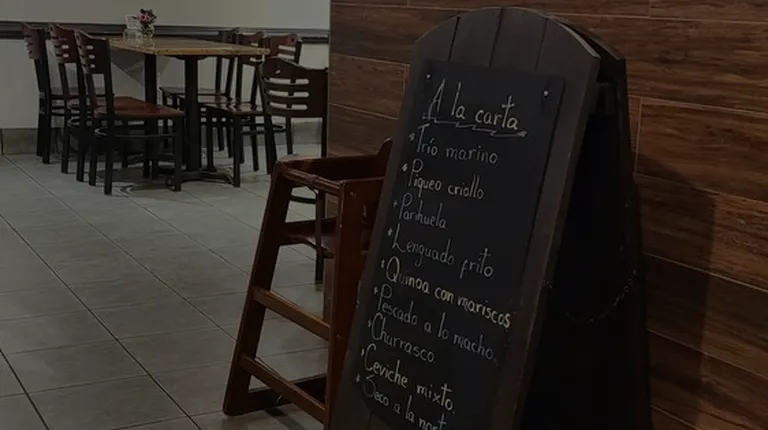 A la carta
* Trío marino
* Piqueo criollo
* Parihuela
* Lenguado frito
* Quinoa con mariscos
* Pescado a lo macho.
* Churrasco
* Ceviche mixto.
* Seco a la